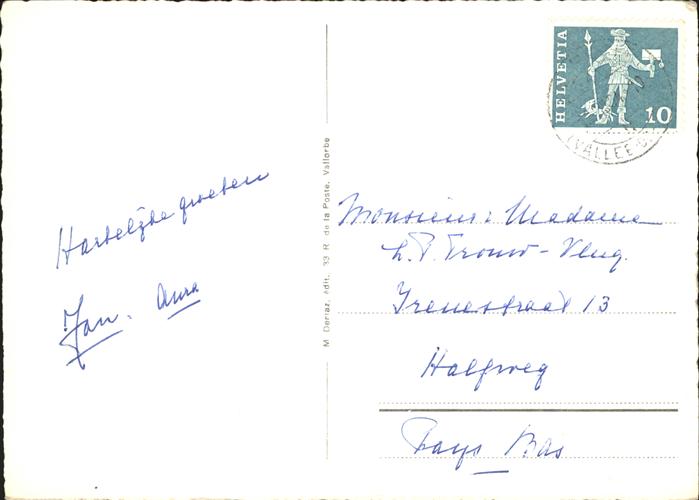 HELVETIA
10
(VALLEE
Hartelijke groeten
Jan. Anna
M. Deriaz, édit., 33 R. de la Poste, Vallorbe
Monsieur: Madame
L.P. Trouw - Vlug.
Irenestraat 13
Halfweg
Pays Bas